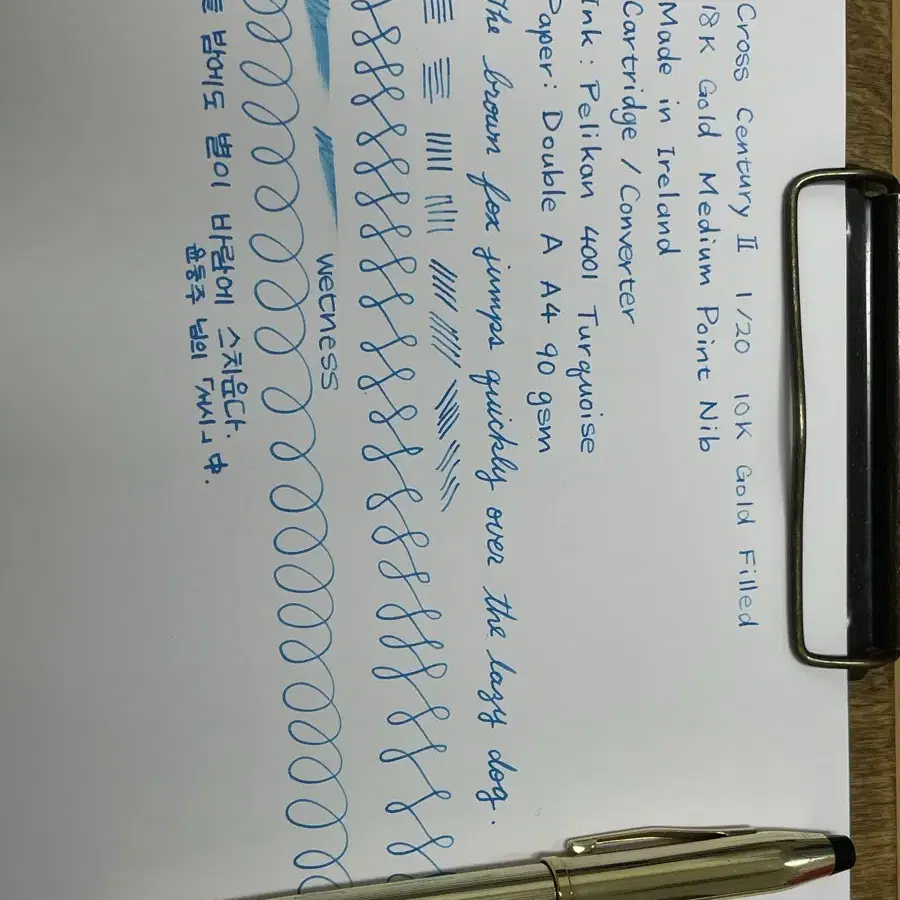 Cross Century II 1/20 10K Gold Filled
18K Gold Medium Point Nib
Made in Ireland
Cartridge / Converter
Ink : Pelikan 4001 Turquoise
Paper : Double A A4 90 gsm
The brown fox jumps quickly over the lazy dog.
wetness
밤에도 별이 바람에 스치운다.
윤동주 님의 「서시」 中.